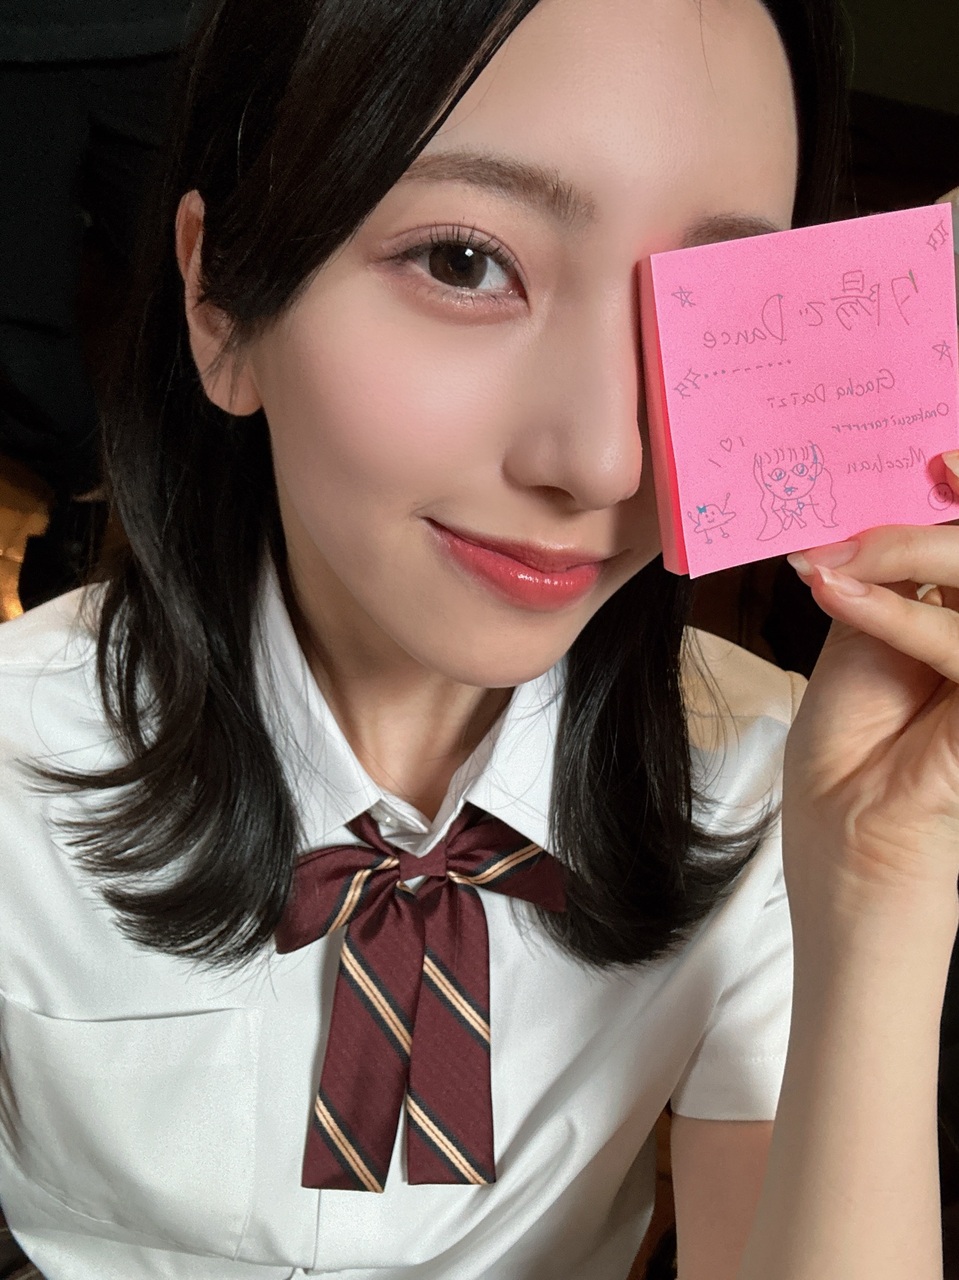 夕陽で Dance
Gacha Daizi
Onakasuitarrrrr
Micchan